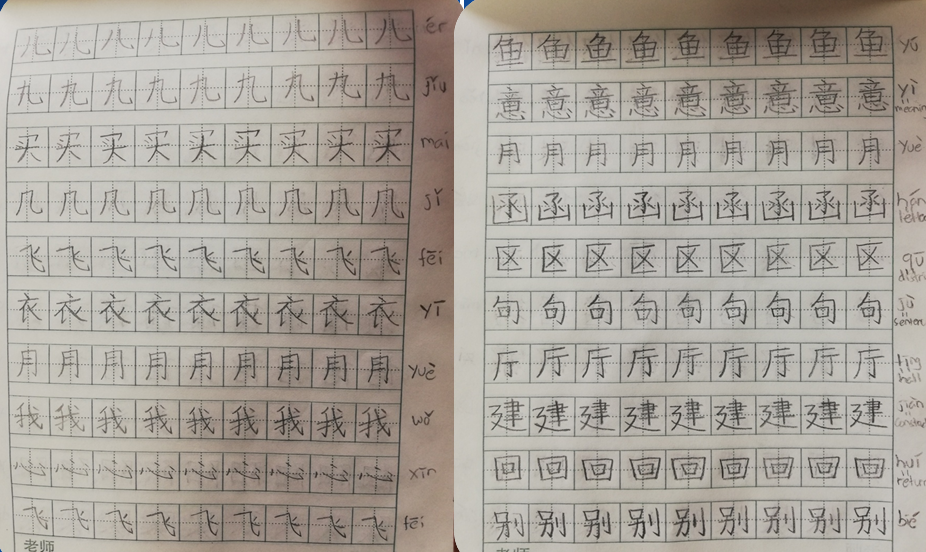 儿 儿 儿 儿 儿 儿 儿 儿 儿 ér
九 九 九 九 九 九 九 九 九 jiǔ
买 买 买 买 买 买 买 买 买 mǎi
几 几 几 几 几 几 几 几 几 jǐ
飞 飞 飞 飞 飞 飞 飞 飞 飞 fēi
衣 衣 衣 衣 衣 衣 衣 衣 衣 yī
月 月 月 月 月 月 月 月 月 yuè
我 我 我 我 我 我 我 我 我 wǒ
心 心 心 心 心 心 心 心 心 xīn
飞 飞 飞 飞 飞 飞 飞 飞 飞 fēi
老师
鱼 鱼 鱼 鱼 鱼 鱼 鱼 鱼 鱼 yú
意 意 意 意 意 意 意 意 意 yì
meaning
月 月 月 月 月 月 月 月 月 yuè
函 函 函 函 函 函 函 函 函 hán
区 区 区 区 区 区 区 区 区 qū
句 句 句 句 句 句 句 句 句 jù
厅 厅 厅 厅 厅 厅 厅 厅 厅 tīng
建 建 建 建 建 建 建 建 建 jiàn
回 回 回 回 回 回 回 回 回 huí
return
别 别 别 别 别 别 别 别 别 bié
老师